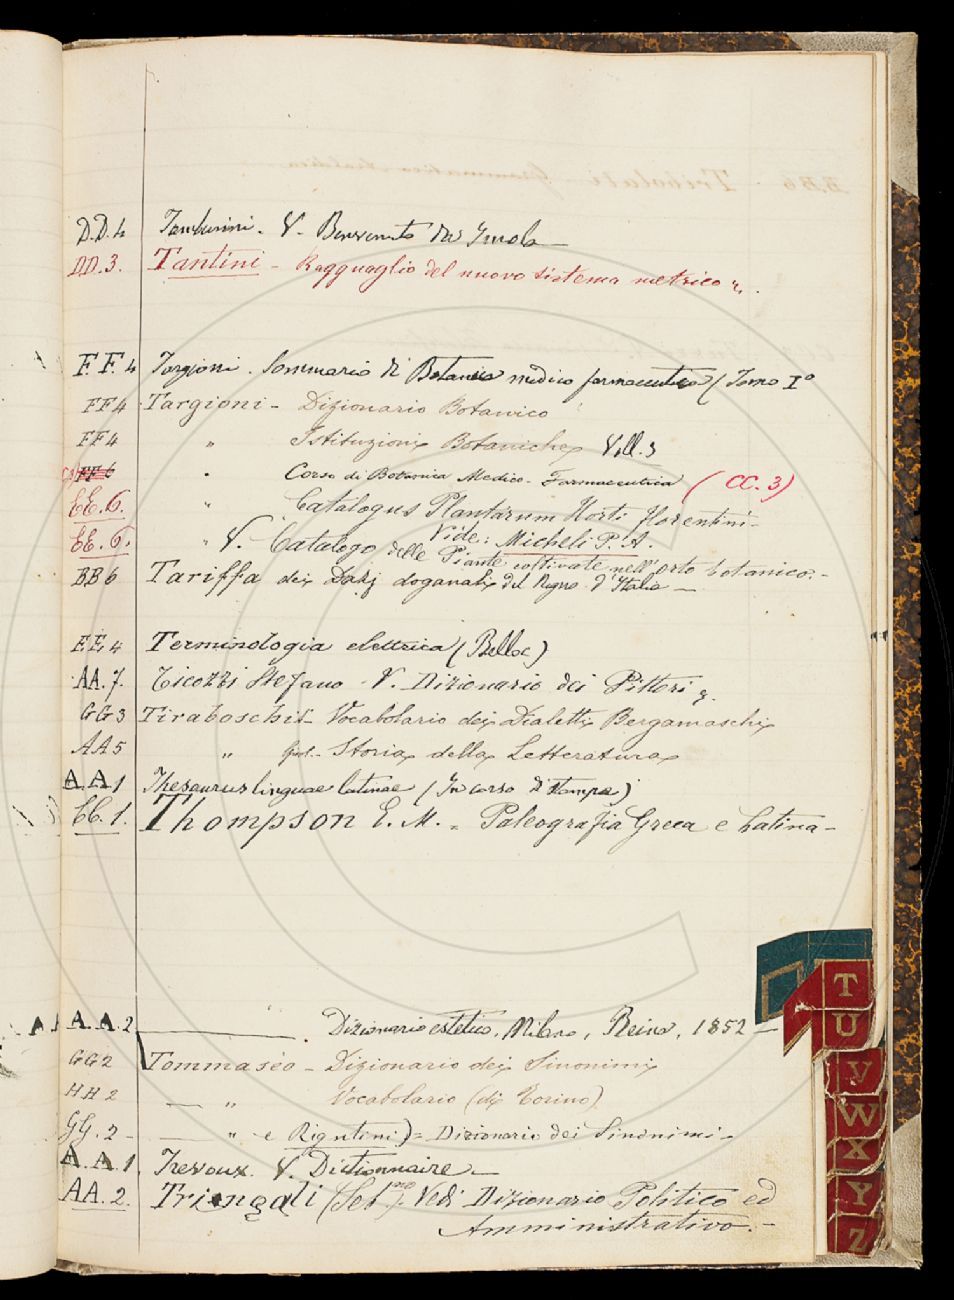 D.D.4 Tamburini. V. Benvenuto da Imola —
DD.3. Tantini - Ragguaglio del nuovo sistema metrico
F.F.4 Targioni. Sommario di Botanica medico farmaceutica (Tomo I°
FF4 Targioni - Dizionario Botanico
FF4 " Istituzioni Botaniche Voll. 3
FF6 " Corso di Botanica Medico-Farmaceutica (CC.3)
EE.6. " Catalogus Plantarum Horti florentini -
Vide: Micheli P. A.
EE.6. " V. Catalogo delle Piante coltivate nell'orto botanico.-
BB6 Tariffa dei Dazj doganali del Regno d'Italia —
EE4 Terminologia elettrica (Belloc)
AA.7. Ticozzi Stefano - V. Dizionario dei Pittori
GG3 Tiraboschi - Vocabolario dei Dialetti Bergamaschi
AA5 " Storia della Letteratura
A.A1 Thesaurus linguae latinae (In corso di stampa)
CC.1. Thompson E. M. = Paleografia Greca e Latina -
A.A.2 — Dizionario estetico, Milano, Reina, 1852 —
GG2 Tommaseo - Dizionario dei Sinonimi
HH2 — " Vocabolario (di Torino)
GG.2 - — " e Rigutini) = Dizionario dei Sinonimi -
A.A.1 Trevoux. V. Dictionnaire —
AA.2. Tringali (Seb.) Vedi Dizionario Politico ed
Amministrativo. -
T
U
V
W
X
Y
Z